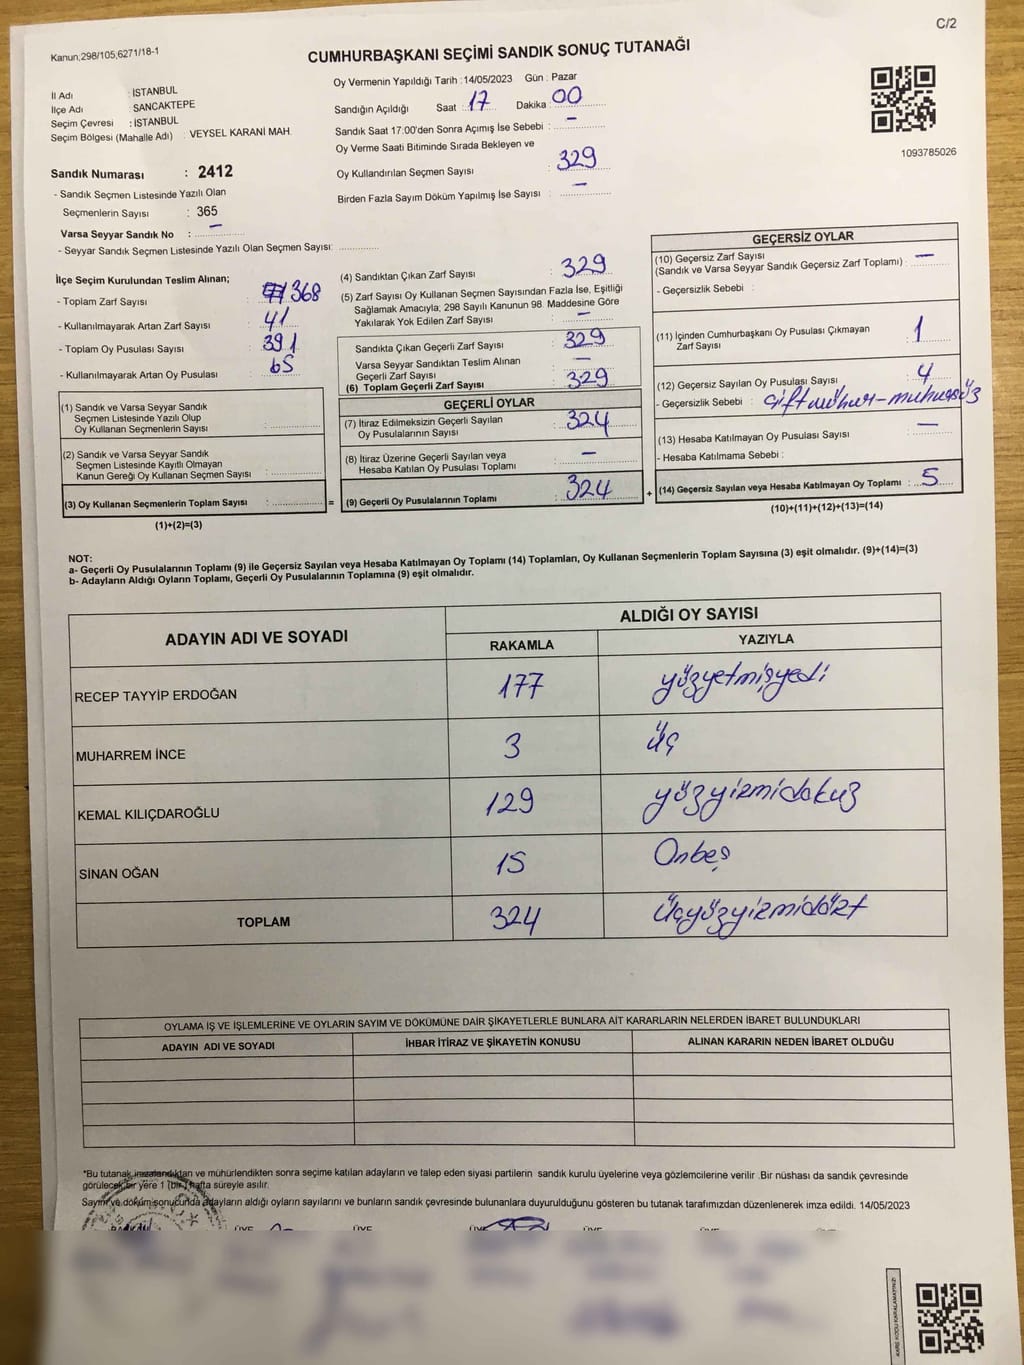 C/2
Kanun;298/105;6271/18-1
CUMHURBAŞKANI SEÇİMİ SANDIK SONUÇ TUTANAĞI
İl Adı : İSTANBUL
İlçe Adı : SANCAKTEPE
Seçim Çevresi : İSTANBUL
Seçim Bölgesi (Mahalle Adı) : VEYSEL KARANİ MAH.
Sandık Numarası : 2412
- Sandık Seçmen Listesinde Yazılı Olan
Seçmenlerin Sayısı : 365
Varsa Seyyar Sandık No : –
- Seyyar Sandık Seçmen Listesinde Yazılı Olan Seçmen Sayısı:
Oy Vermenin Yapıldığı Tarih :14/05/2023 Gün : Pazar
Sandığın Açıldığı Saat : 17 Dakika : 00
Sandık Saat 17:00'den Sonra Açımış İse Sebebi : –
Oy Verme Saati Bitiminde Sırada Bekleyen ve
Oy Kullandırılan Seçmen Sayısı : 329
Birden Fazla Sayım Döküm Yapılmış İse Sayısı : –
1093785026
İlçe Seçim Kurulundan Teslim Alınan;
- Toplam Zarf Sayısı : 368
- Kullanılmayarak Artan Zarf Sayısı : 41
- Toplam Oy Pusulası Sayısı : 391
- Kullanılmayarak Artan Oy Pusulası : 65
(1) Sandık ve Varsa Seyyar Sandık
Seçmen Listesinde Yazılı Olup
Oy Kullanan Seçmenlerin Sayısı :
(2) Sandık ve Varsa Seyyar Sandık
Seçmen Listesinde Kayıtlı Olmayan
Kanun Gereği Oy Kullanan Seçmen Sayısı :
(3) Oy Kullanan Seçmenlerin Toplam Sayısı : =
(1)+(2)=(3)
(4) Sandıktan Çıkan Zarf Sayısı : 329
(5) Zarf Sayısı Oy Kullanan Seçmen Sayısından Fazla İse, Eşitliği
Sağlamak Amacıyla, 298 Sayılı Kanunun 98. Maddesine Göre
Yakılarak Yok Edilen Zarf Sayısı : –
Sandıkta Çıkan Geçerli Zarf Sayısı : 329
Varsa Seyyar Sandıktan Teslim Alınan
Geçerli Zarf Sayısı : –
(6) Toplam Geçerli Zarf Sayısı : 329
GEÇERLİ OYLAR
(7) İtiraz Edilmeksizin Geçerli Sayılan
Oy Pusulalarının Sayısı : 324
(8) İtiraz Üzerine Geçerli Sayılan veya
Hesaba Katılan Oy Pusulası Toplamı : –
(9) Geçerli Oy Pusulalarının Toplamı : 324 +
GEÇERSİZ OYLAR
(10) Geçersiz Zarf Sayısı
(Sandık ve Varsa Seyyar Sandık Geçersiz Zarf Toplamı) : –
- Geçersizlik Sebebi :
(11) İçinden Cumhurbaşkanı Oy Pusulası Çıkmayan
Zarf Sayısı : 1
(12) Geçersiz Sayılan Oy Pusulası Sayısı : 4
- Geçersizlik Sebebi : çift mühür - mühürsüz
(13) Hesaba Katılmayan Oy Pusulası Sayısı : –
- Hesaba Katılmama Sebebi :
(14) Geçersiz Sayılan veya Hesaba Katılmayan Oy Toplamı : 5
(10)+(11)+(12)+(13)=(14)
NOT:
a- Geçerli Oy Pusulalarının Toplamı (9) ile Geçersiz Sayılan veya Hesaba Katılmayan Oy Toplamı (14) Toplamları, Oy Kullanan Seçmenlerin Toplam Sayısına (3) eşit olmalıdır. (9)+(14)=(3)
b- Adayların Aldığı Oyların Toplamı, Geçerli Oy Pusulalarının Toplamına (9) eşit olmalıdır.
ADAYIN ADI VE SOYADI
ALDIĞI OY SAYISI
RAKAMLA YAZIYLA
RECEP TAYYİP ERDOĞAN 177 yüzyetmişyedi
MUHARREM İNCE 3 üç
KEMAL KILIÇDAROĞLU 129 yüzyirmidokuz
SİNAN OĞAN 15 Onbeş
TOPLAM 324 üçyüzyirmidört
OYLAMA İŞ VE İŞLEMLERİNE VE OYLARIN SAYIM VE DÖKÜMÜNE DAİR ŞİKAYETLERLE BUNLARA AİT KARARLARIN NELERDEN İBARET BULUNDUKLARI
ADAYIN ADI VE SOYADI İHBAR İTİRAZ VE ŞİKAYETİN KONUSU ALINAN KARARIN NEDEN İBARET OLDUĞU
*Bu tutanak imzalandıktan ve mühürlendikten sonra seçime katılan adayların ve talep eden siyasi partilerin sandık kurulu üyelerine veya gözlemcilerine verilir .Bir nüshası da sandık çevresinde
görülecek bir yere 1 (bir) hafta süreyle asılır.
Sayım ve döküm sonucunda adayların aldığı oyların sayılarını ve bunların sandık çevresinde bulunanlara duyurulduğunu gösteren bu tutanak tarafımızdan düzenlenerek imza edildi. 14/05/2023
ÜYE ÜYE ÜYE ÜYE ÜYE ÜYE